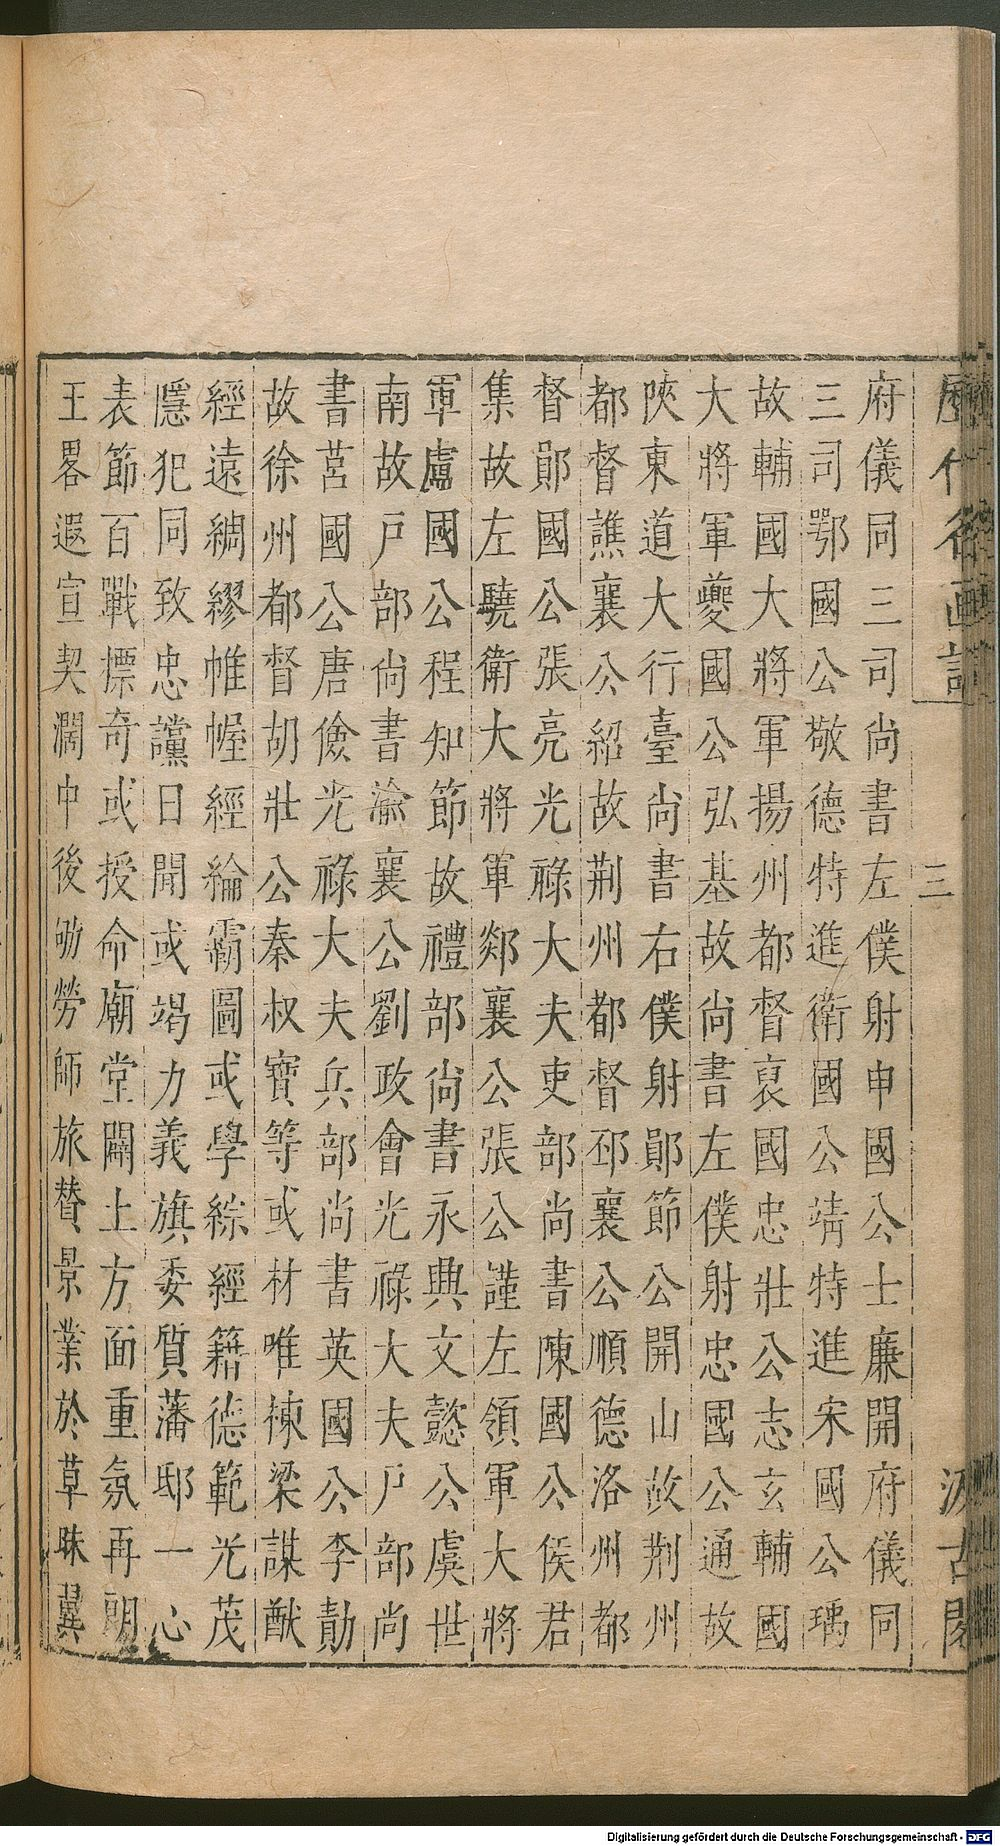 歷代名画記
三
汲古閣
府儀同三司尙書左僕射申國公士廉開府儀同
三司鄂國公敬德特進衛國公靖特進宋國公瑀
故輔國大將軍揚州都督裒國忠壯公志玄輔國
大將軍夔國公弘基故尙書左僕射忠國公通故
陝東道大行臺尙書右僕射鄖節公開山故荆州
都督譙襄公紹故荆州都督邳襄公順德洛州都
督鄖國公張亮光祿大夫吏部尙書陳國公侯君
集故左驍衛大將軍郯襄公張公謹左領軍大將
軍盧國公程知節故禮部尙書永興文懿公虞世
南故戸部尙書渝襄公劉政會光祿大夫戸部尙
書莒國公唐儉光祿大夫兵部尙書英國公李勣
故徐州都督胡壯公秦叔寶等或材唯揀梁謀猷
經遠綢繆帷幄經綸霸圖或學綜經籍德範光茂
隱犯同致忠讜日聞或竭力義旗委質藩邸一心
表節百戰摽奇或授命廟堂闢土方面重氛再朗
王畧遐宣契濶中後劬勞師旅賛景業於草昧翼
Digitalisierung gefördert durch die Deutsche Forschungsgemeinschaft - DFG